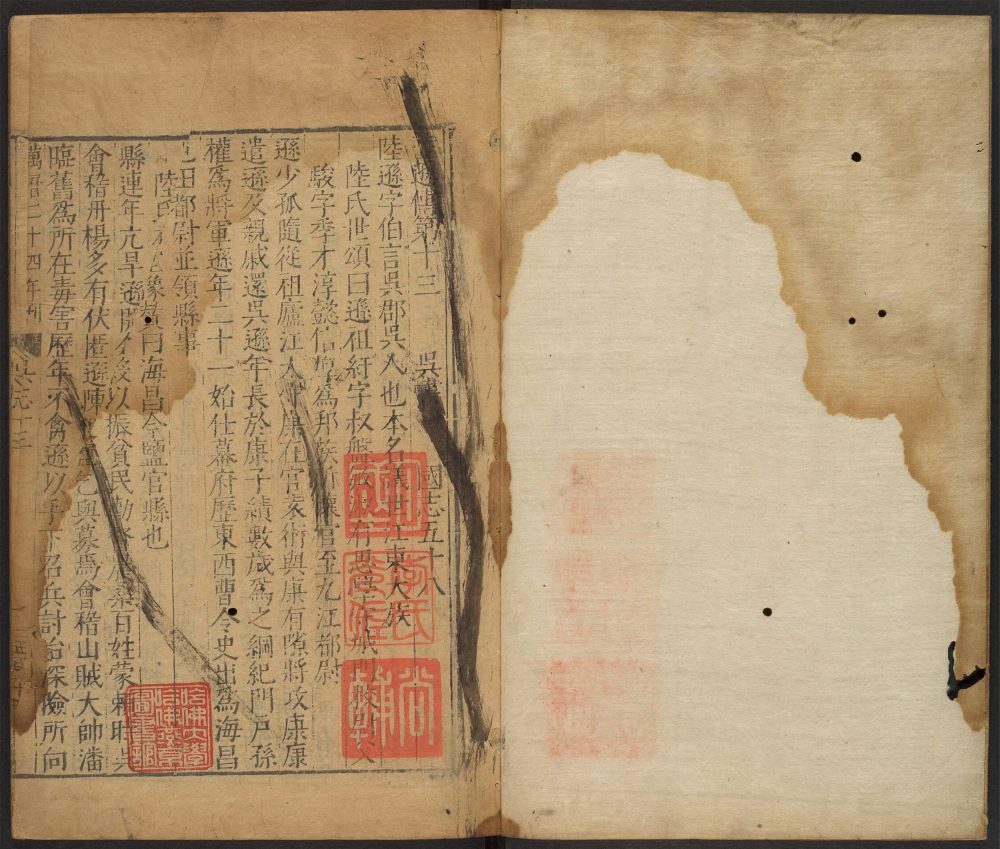 遜傳第十三 吳 國志五十八
陸遜字伯言吳郡吳人也本名議世江東大族
陸氏世頌曰遜祖紆字叔盤敏淑有思學城門校尉父
駿字季才淳懿信爲邦族懷官至九江都尉
遜少孤隨從祖廬江太守康在官袁術與康有隙將攻康康
遣遜及親戚還吳遜年長於康子績數歲爲之綱紀門戶孫
權爲將軍遜年二十一始仕幕府歷東西曹令史出爲海昌
屯田都尉並領縣事
陸氏祠堂像贊曰海昌今鹽官縣也
縣連年亢旱遜開倉穀以振貧民勸農桑百姓蒙賴時吳
會稽丹楊多有伏匿遜陳乞與募焉會稽山賊大帥潘
臨舊爲所在毒害歷年不禽遜以手下召兵討治深險所向
萬曆二十四年刊 吳志十三
李氏
尚
哈佛大學
哈佛燕京
圖書館